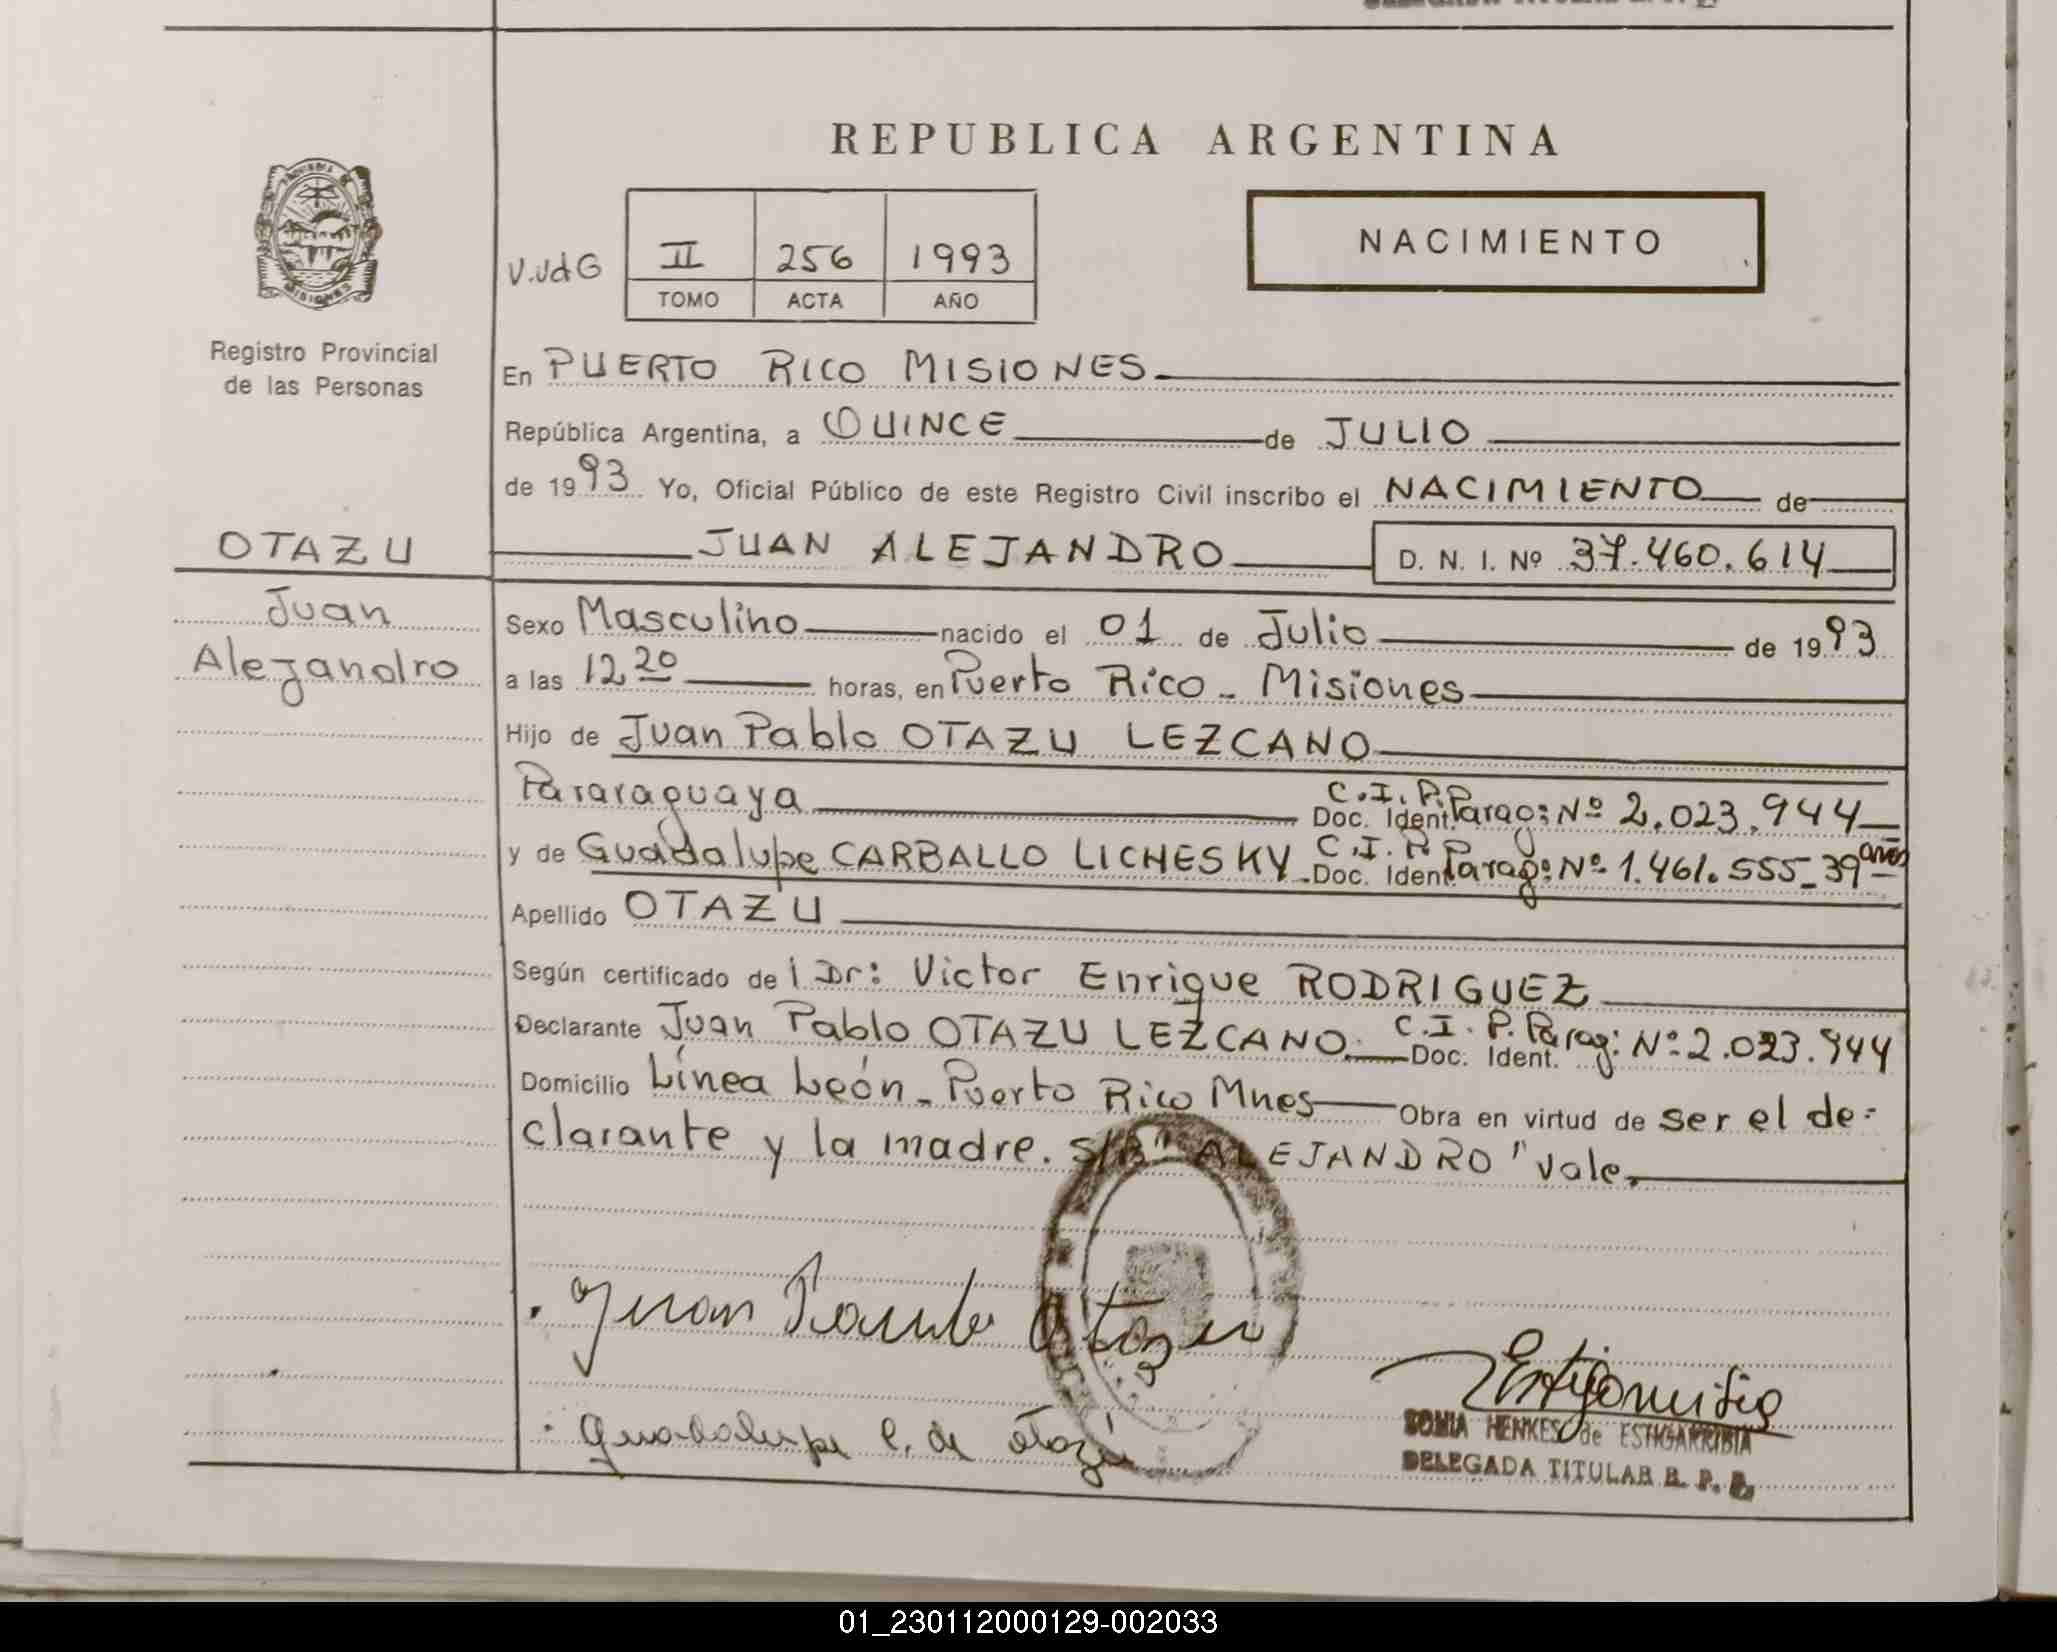 REPUBLICA ARGENTINA
NACIMIENTO
V.VdG
II 256 1993
TOMO ACTA AÑO
Registro Provincial
de las Personas
En PUERTO RICO MISIONES
República Argentina, a QUINCE de JULIO
de 1993 Yo, Oficial Público de este Registro Civil inscribo el NACIMIENTO de
JUAN ALEJANDRO D. N. I. Nº 37.460.614
OTAZU
Juan
Alejandro
Sexo Masculino nacido el 01 de Julio de 1993
a las 12 20 horas, en Puerto Rico - Misiones
Hijo de Juan Pablo OTAZU LEZCANO
Pararaguaya Doc. Ident. C.I.P. Parag: Nº 2.023.944
y de Guadalupe CARBALLO LICHESKY - Doc. Ident. C.I.P. Parag: Nº 1.461.555 - 39 años
Apellido OTAZU
Según certificado de l Dr: Victor Enrique RODRIGUEZ
Declarante Juan Pablo OTAZU LEZCANO. Doc. Ident. C.I.P. Parag: Nº 2.023.944
Domicilio Línea León - Puerto Rico Mnes Obra en virtud de ser el de=
clarante y la madre. S/R "ALEJANDRO" vale.
Juan Otazu
Guadalupe C. de Otazú
SONIA HENKES de ESTIGARRIBIA
DELEGADA TITULAR R. P. P.
MISIONES
01_230112000129-002033